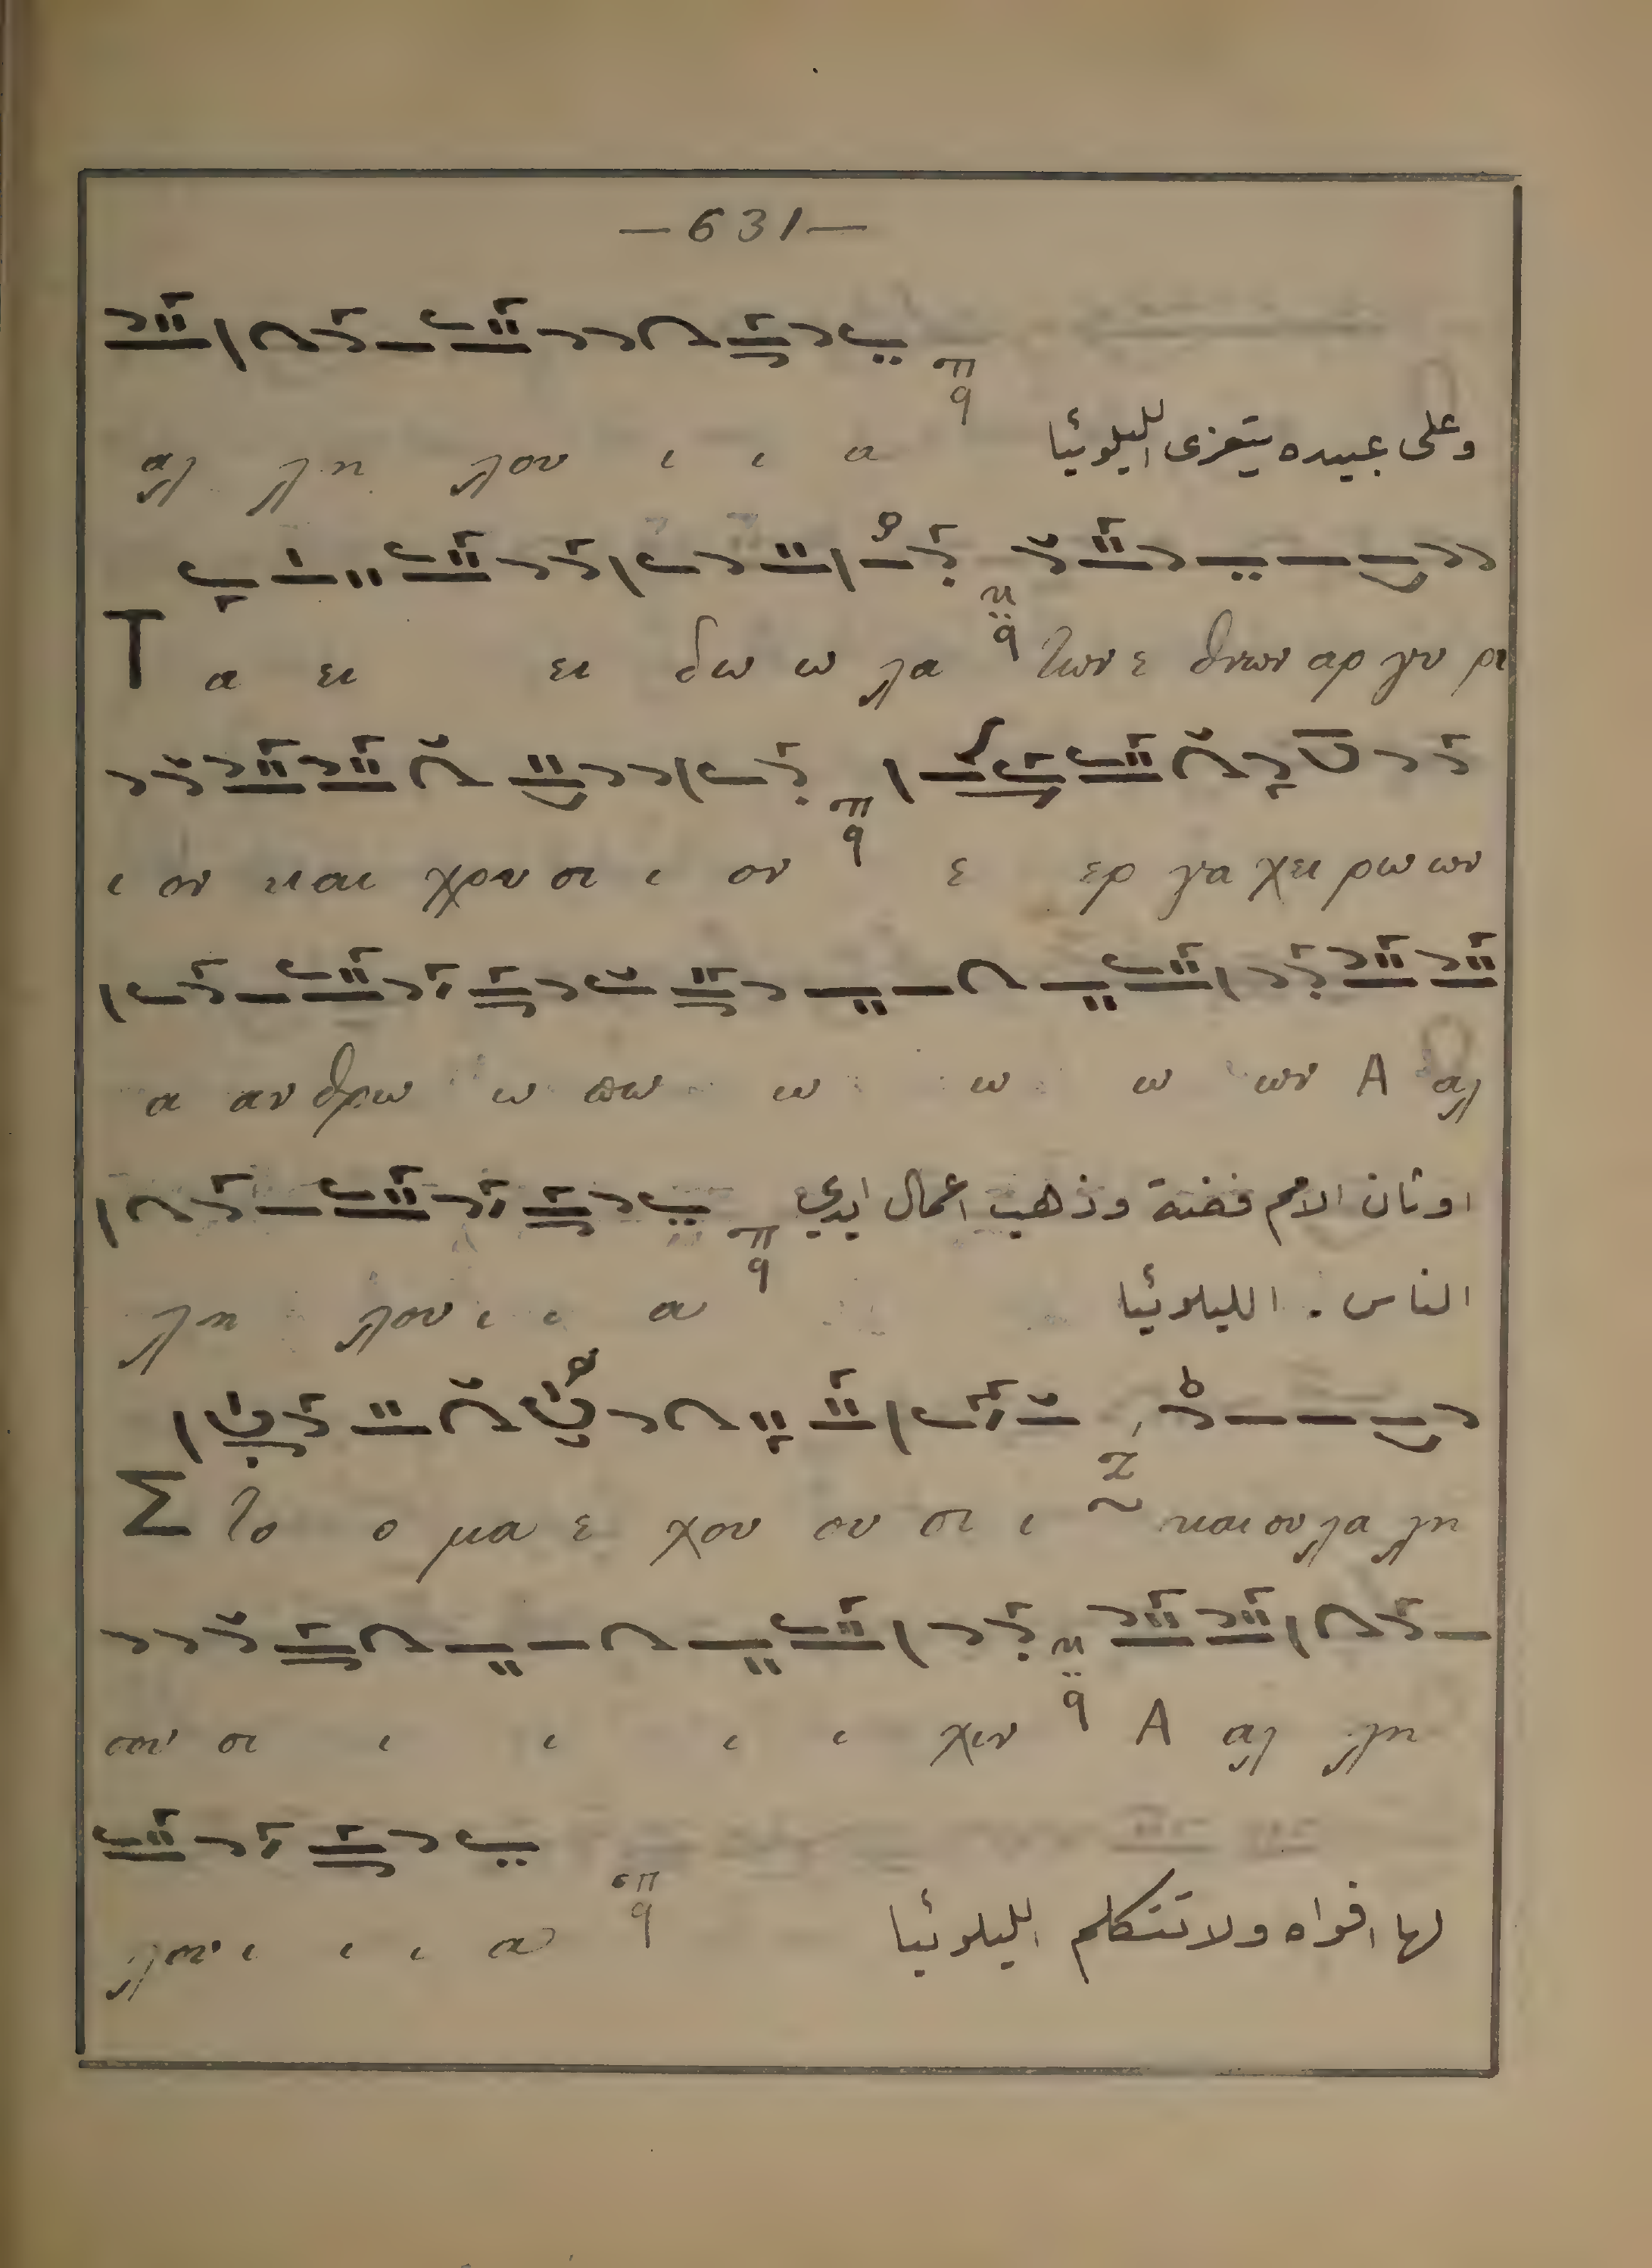 —631—
αλ λη λου ι ι α وعلى عبيده يتعزى الليلوئيا
Τ α ει ει δω ω λα των ε θνων αρ γυ ρι
ι ον και χρυ σι ι ον ε ερ γα χει ρω ων
α αν θρω ω πω ω ω ω ων Α αλ
اوثان الامم فضة وذهب اعمال ايدي
λη λου ι ι α الناس . الليلوئيا
Σ το ο μα ε χου ου σι ι και ου λα λη
σου σι ι ι ι ι χιν Α αλ λη
λου ι ι ι α لها افواه ولا تتكلم الليلوئيا